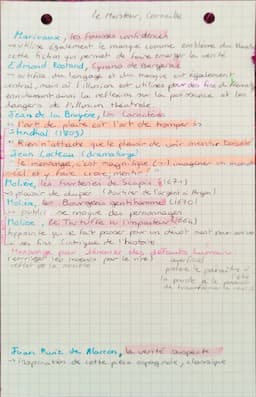 le Menteur, Corneille
Marivaux, les fausses confidences
→ utilise également le masque comme emblème du
cette fiction qui permet de faire émerger la vérité
Edmond Rostand, Cyrano de Bergerac
→ artifice du langage et du masque est également
central, mais ici l'illusion est utilisée pour des fins
enrichissant ainsi la réflexion sur la puissance et les
dangers de l'illusion théâtrale.
Jean de la Bruyère, les Caractères
"l'art de plaire est l'art de tromper"
Stendhal (1803)
"Rien n'attache que le plaisir de voir mentir
Jean Cocteau (dramaturge)
"le mensonge, c'est magnifique (...) imaginer un monde
réel et y faire croire, mentir"
Molière, les fourberies de Scapin (1671)
→ plaisir de duper (soutirer de l'argent à Argan)
Molière, le Bourgeois gentilhomme (1670)
→ public se moque des personnages
Molière, le Tartuffe ou l'imposteur (1664)
hypocrite qui se fait passer pour un dévot
à ses fins. l'intrigue de l'histoire
Mensonge pour dénoncer des défauts humains
(corriger les moeurs par le rire)
la parole a le pouvoir
de transformer
Juan Ruiz de Alarcon, la vérité suspecte
→ inspiration de cette pièce espagnole, classique